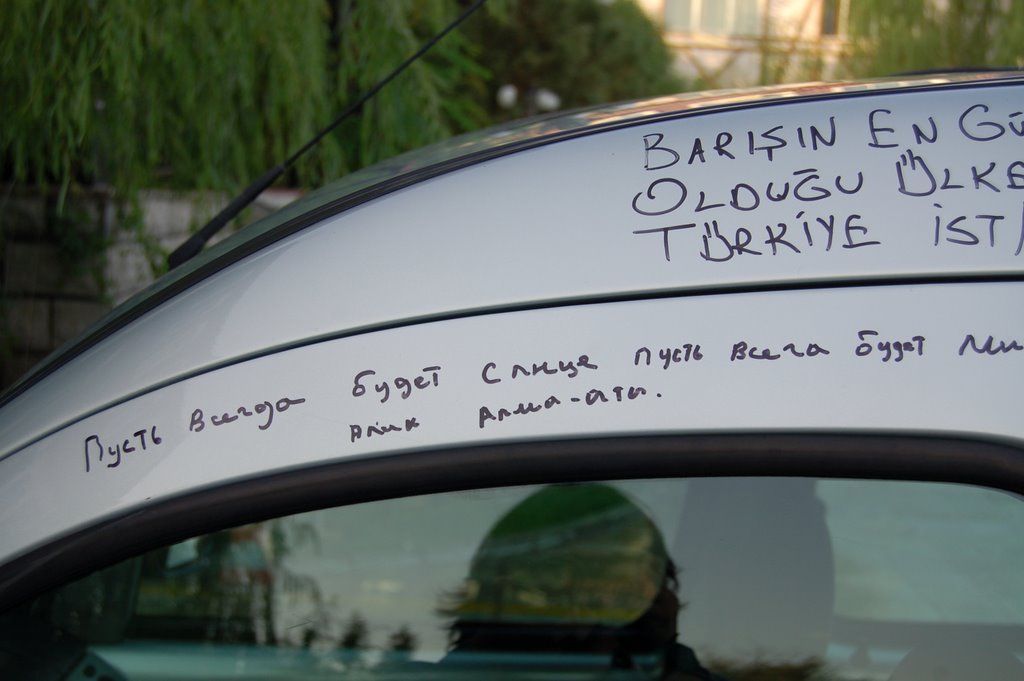 BARIŞIN EN GÜ
OLDUĞU ÜLKE
TÜRKİYE İST
Пусть всегда будет Слнце пусть всега будет ми
Алик Алма-ата.